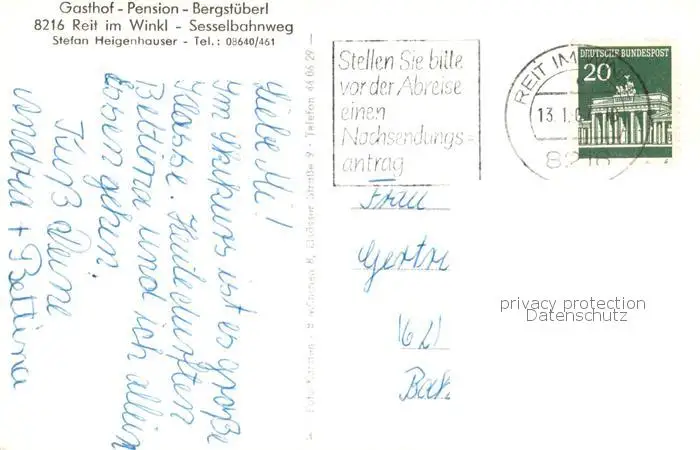 Gasthof - Pension - Bergstüberl
8216 Reit im Winkl - Sesselbahnweg
Stefan Heigenhauser - Tel.: 08640/461
Liebe Mi!
Im Skikurs ist es große
Klasse. Heute durften
Bettina und ich allein
Essen gehen.
Kuß Deine
Andrea + Bettina
Stellen Sie bitte
vor der Abreise
einen
Nachsendungs=
antrag
REIT IM
13.1.
8216
DEUTSCHE BUNDESPOST
20
Frau
Gertr
(6L)
Bad
privacy protection
Datenschutz